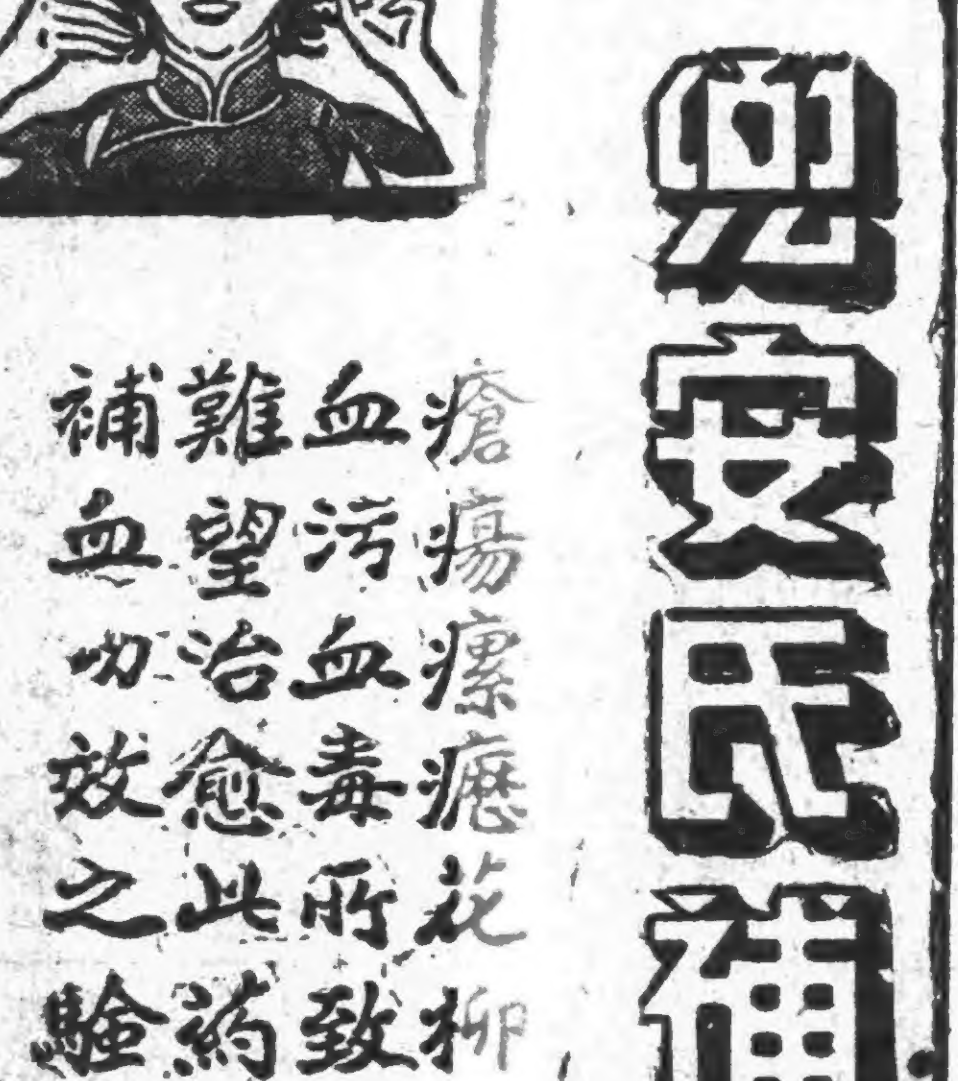 兜安氏補
瘡瘍瘰癧花柳
血污血毒所致
難望治愈此葯
補血功效之驗